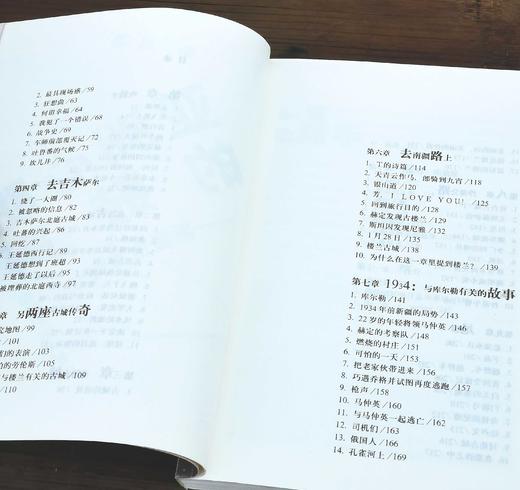 2. 最具现场感/59
3. 狂想曲/63
4. 何谓幸福/64
5. 我犯了一个错误/68
6. 战争史/69
7. 车师前部覆灭记/72
8. 吐鲁番的气候/75
9. 坎儿井/76
第四章 去吉木萨尔
1. 绕了一大圈/80
2. 被忽略的信息/82
3. 吉木萨尔北庭古城/83
4. 吐蕃的兴起/86
5. 回纥/87
王延德西行记/89
王延德想到了班超/93
王延德走了以后/95
被埋葬的北庭西寺/97
章 另两座古城传奇
地图/99
/101
的表演/103
的劳伦斯/105
与楼兰有关的古城/109
/110
第六章 去南疆路上
1. 丁的诗篇/114
2. 天青云作马,郎骑到九霄/118
3. 银山道/120
4. 芳,I LOVE YOU!/125
5. 回到旅行目的/128
6. 赫定发现古楼兰/129
7. 斯坦因发现尼雅/132
8. 1月28日/135
9. 楼兰古城/138
10. 为什么在这一章里提到楼兰?/139
第七章 1934:与库尔勒有关的故事
1. 库尔勒/141
2. 1934年前新疆的局势/143
3. 22岁的年轻将领马仲英/146
4. 赫定的考察队/148
5. 燃烧的村庄/151
6. 可怕的一天/153
7. 把老家伙带进来/156
8. 巧遇乔格并试图再度逃跑/157
9. 枪声/158
10. 马仲英/160
11. 与马仲英一起逃亡/162
12. 司机们/163
13. 俄国人/165
14. 孔雀河上/169